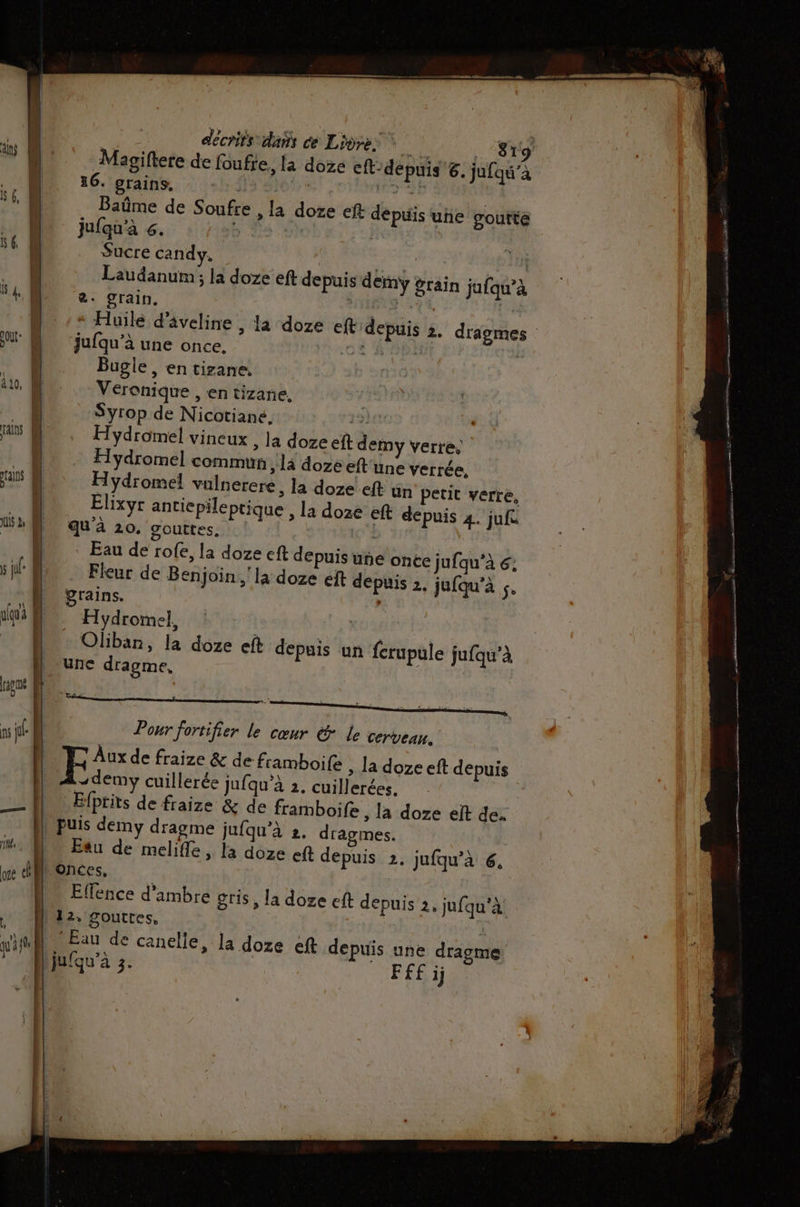 décrits dans ce Livre. 819
Magiftere de foufre, la doze eft depuis 6. jufqu'à
16. grains.
Baûme de Soufre, la doze eft depuis une goutte
jufqu'à 6.
Sucre candy.
Laudanum; la doze eft depuis demy grain jufqu'à
2. grain.
Huile d'aveline, la doze eft depuis 2. dragmes
jufqu'à une once.
Bugle, en tizane.
Veronique, en tizane.
Syrop de Nicotiane.
Hydromel vineux, la doze eft demy verre.
Hydromel commun, la doze eft une verrée.
Hydromel vulnerere, la doze eft un petit verre.
Elixyr antiepileptique, la doze eft depuis 4. juf-
qu'à 20. gouttes.
Eau de rofe, la doze eft depuis une once jufqu'à 6.
Fleur de Benjoin, la doze eft depuis 2. jufqu'à 5.
grains.
Hydromel,
Oliban, la doze eft depuis un fcrupule jufqu'à
une dragme.
Pour fortifier le cœur & le cerveau.
EAux de fraize & de framboife, la doze eft depuis
demy cuillerée jufqu'à 2. cuillerées.
Efprits de fraize & de framboife, la doze eft de-
puis demy dragme jufqu'à 2. dragmes.
Eau de meliffe, la doze eft depuis 2. jufqu'à 6.
onces.
Effence d'ambre gris, la doze eft depuis 2. jufqu'à
12. gouttes.
Eau de canelle, la doze eft depuis une dragme
jufqu'à 3.
Fff ij